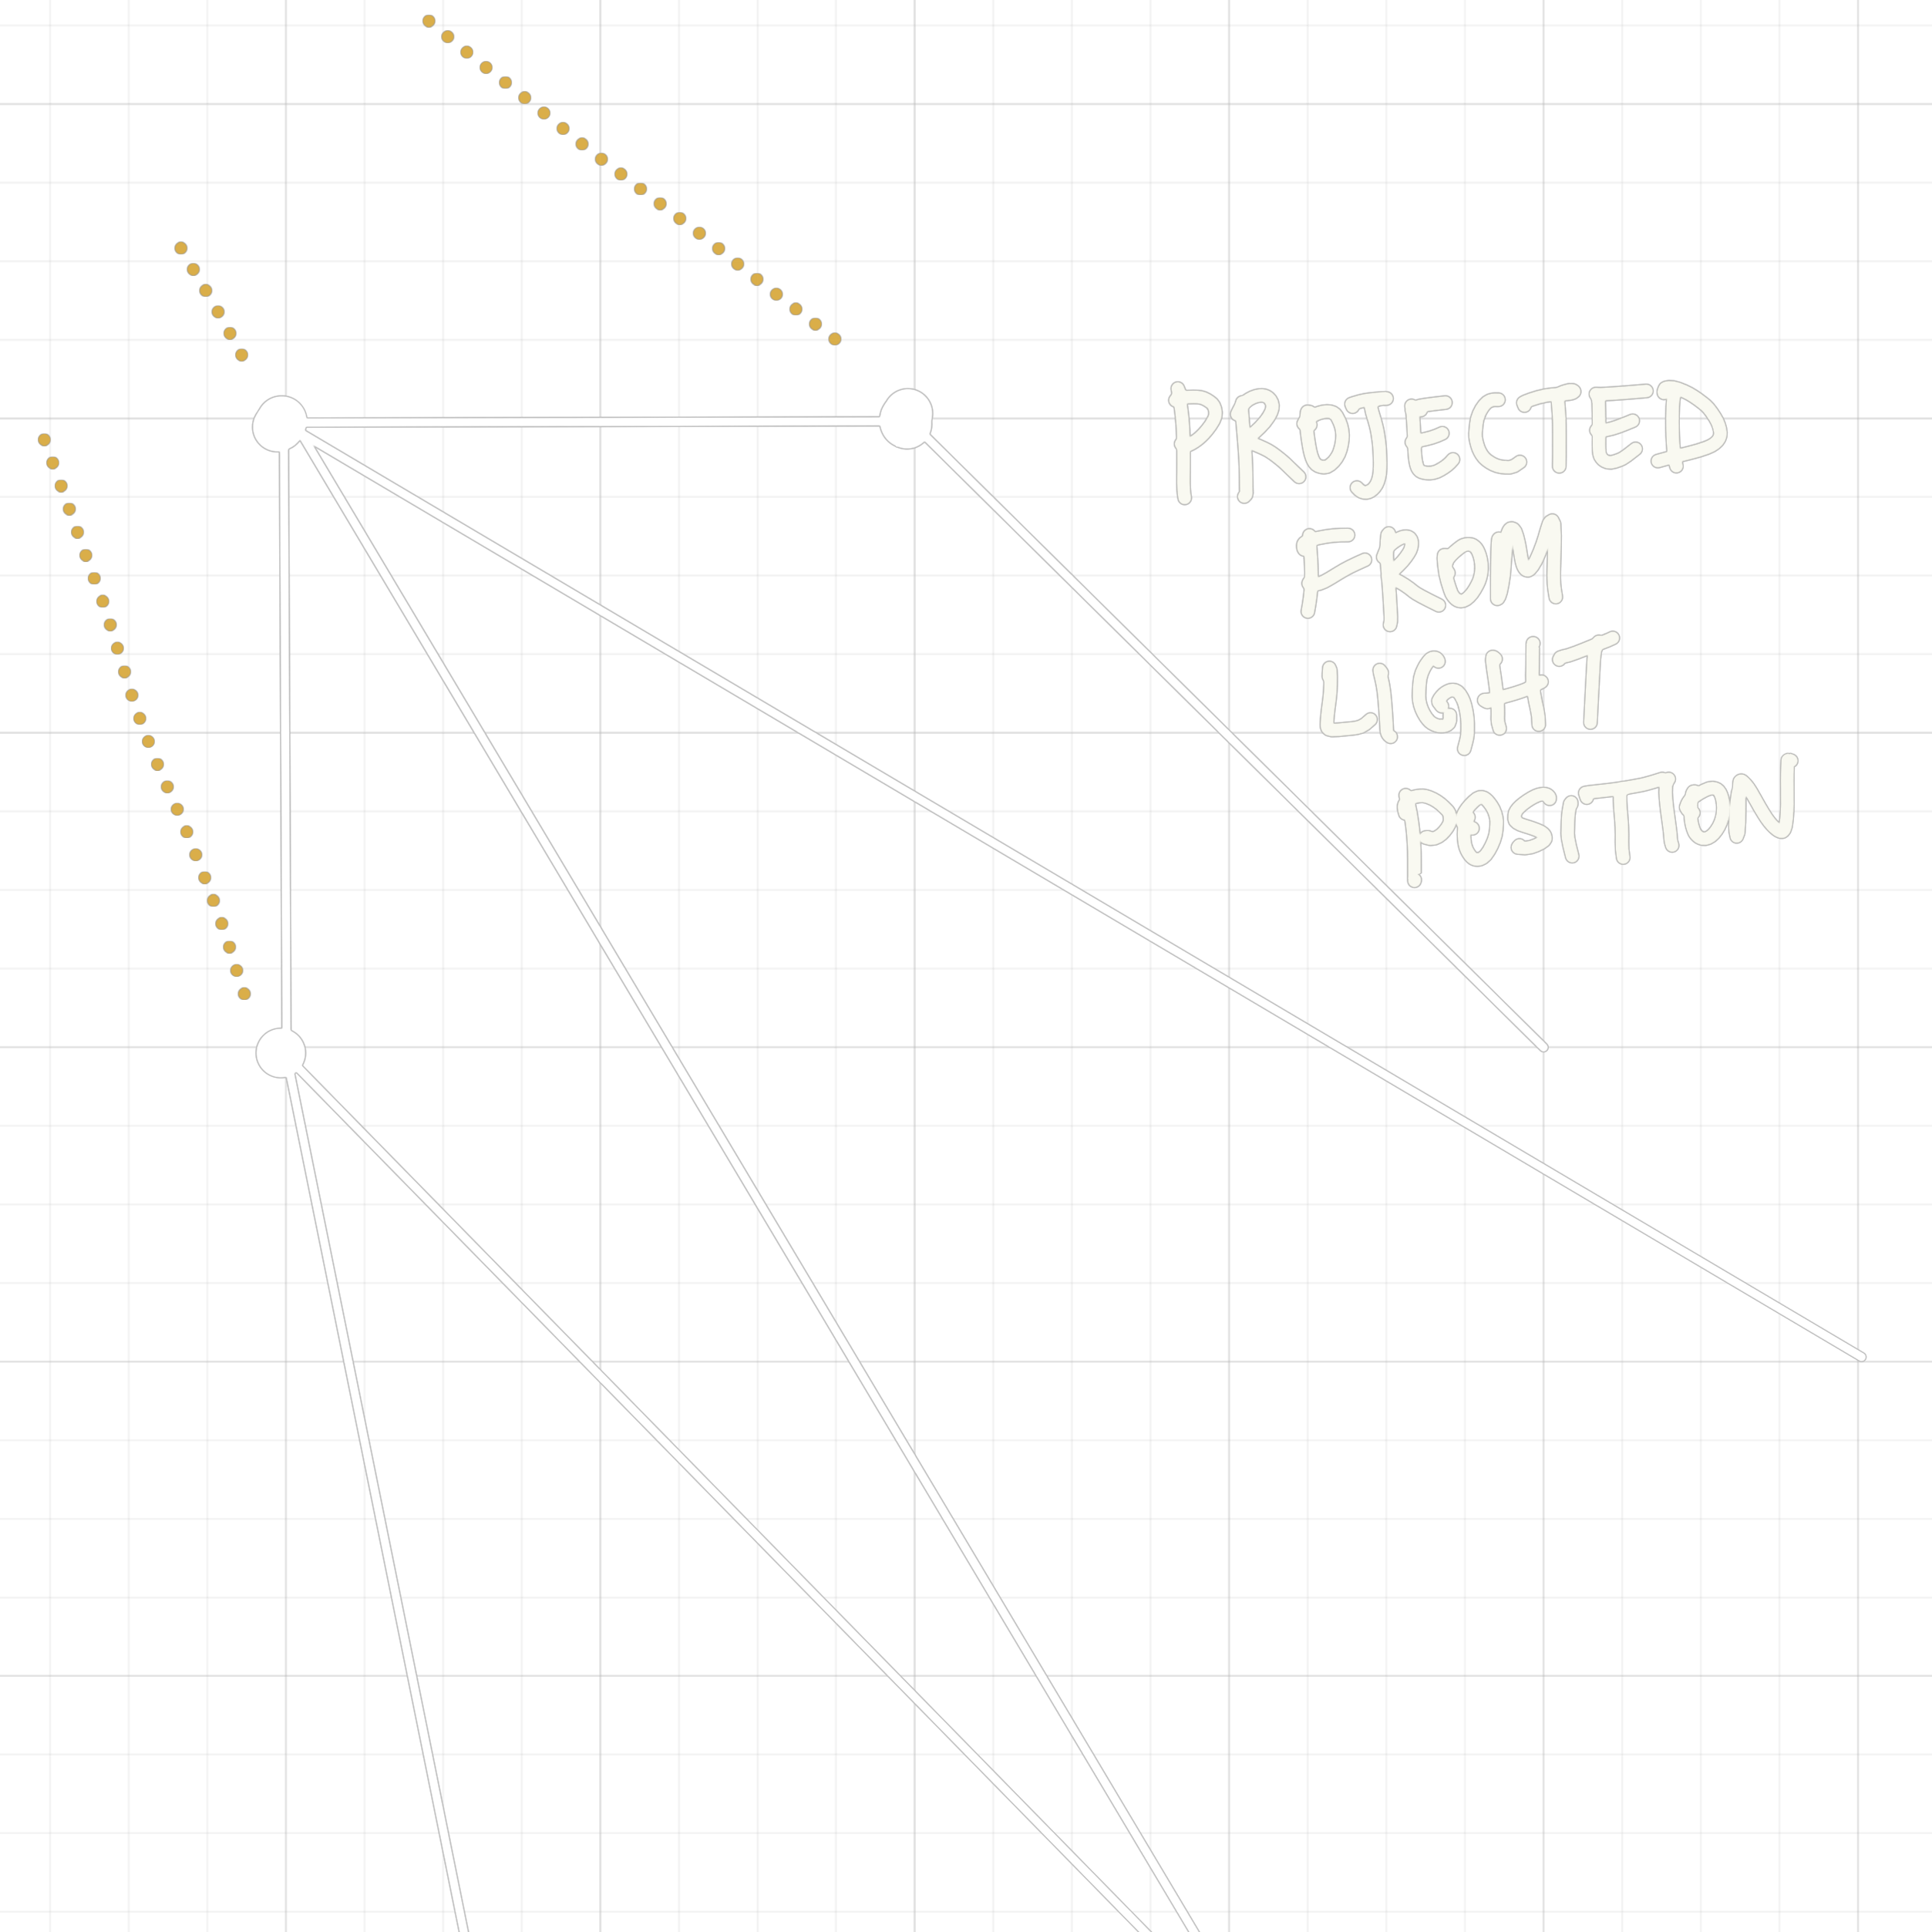 PROJECTED
FROM
LIGHT
POSITION